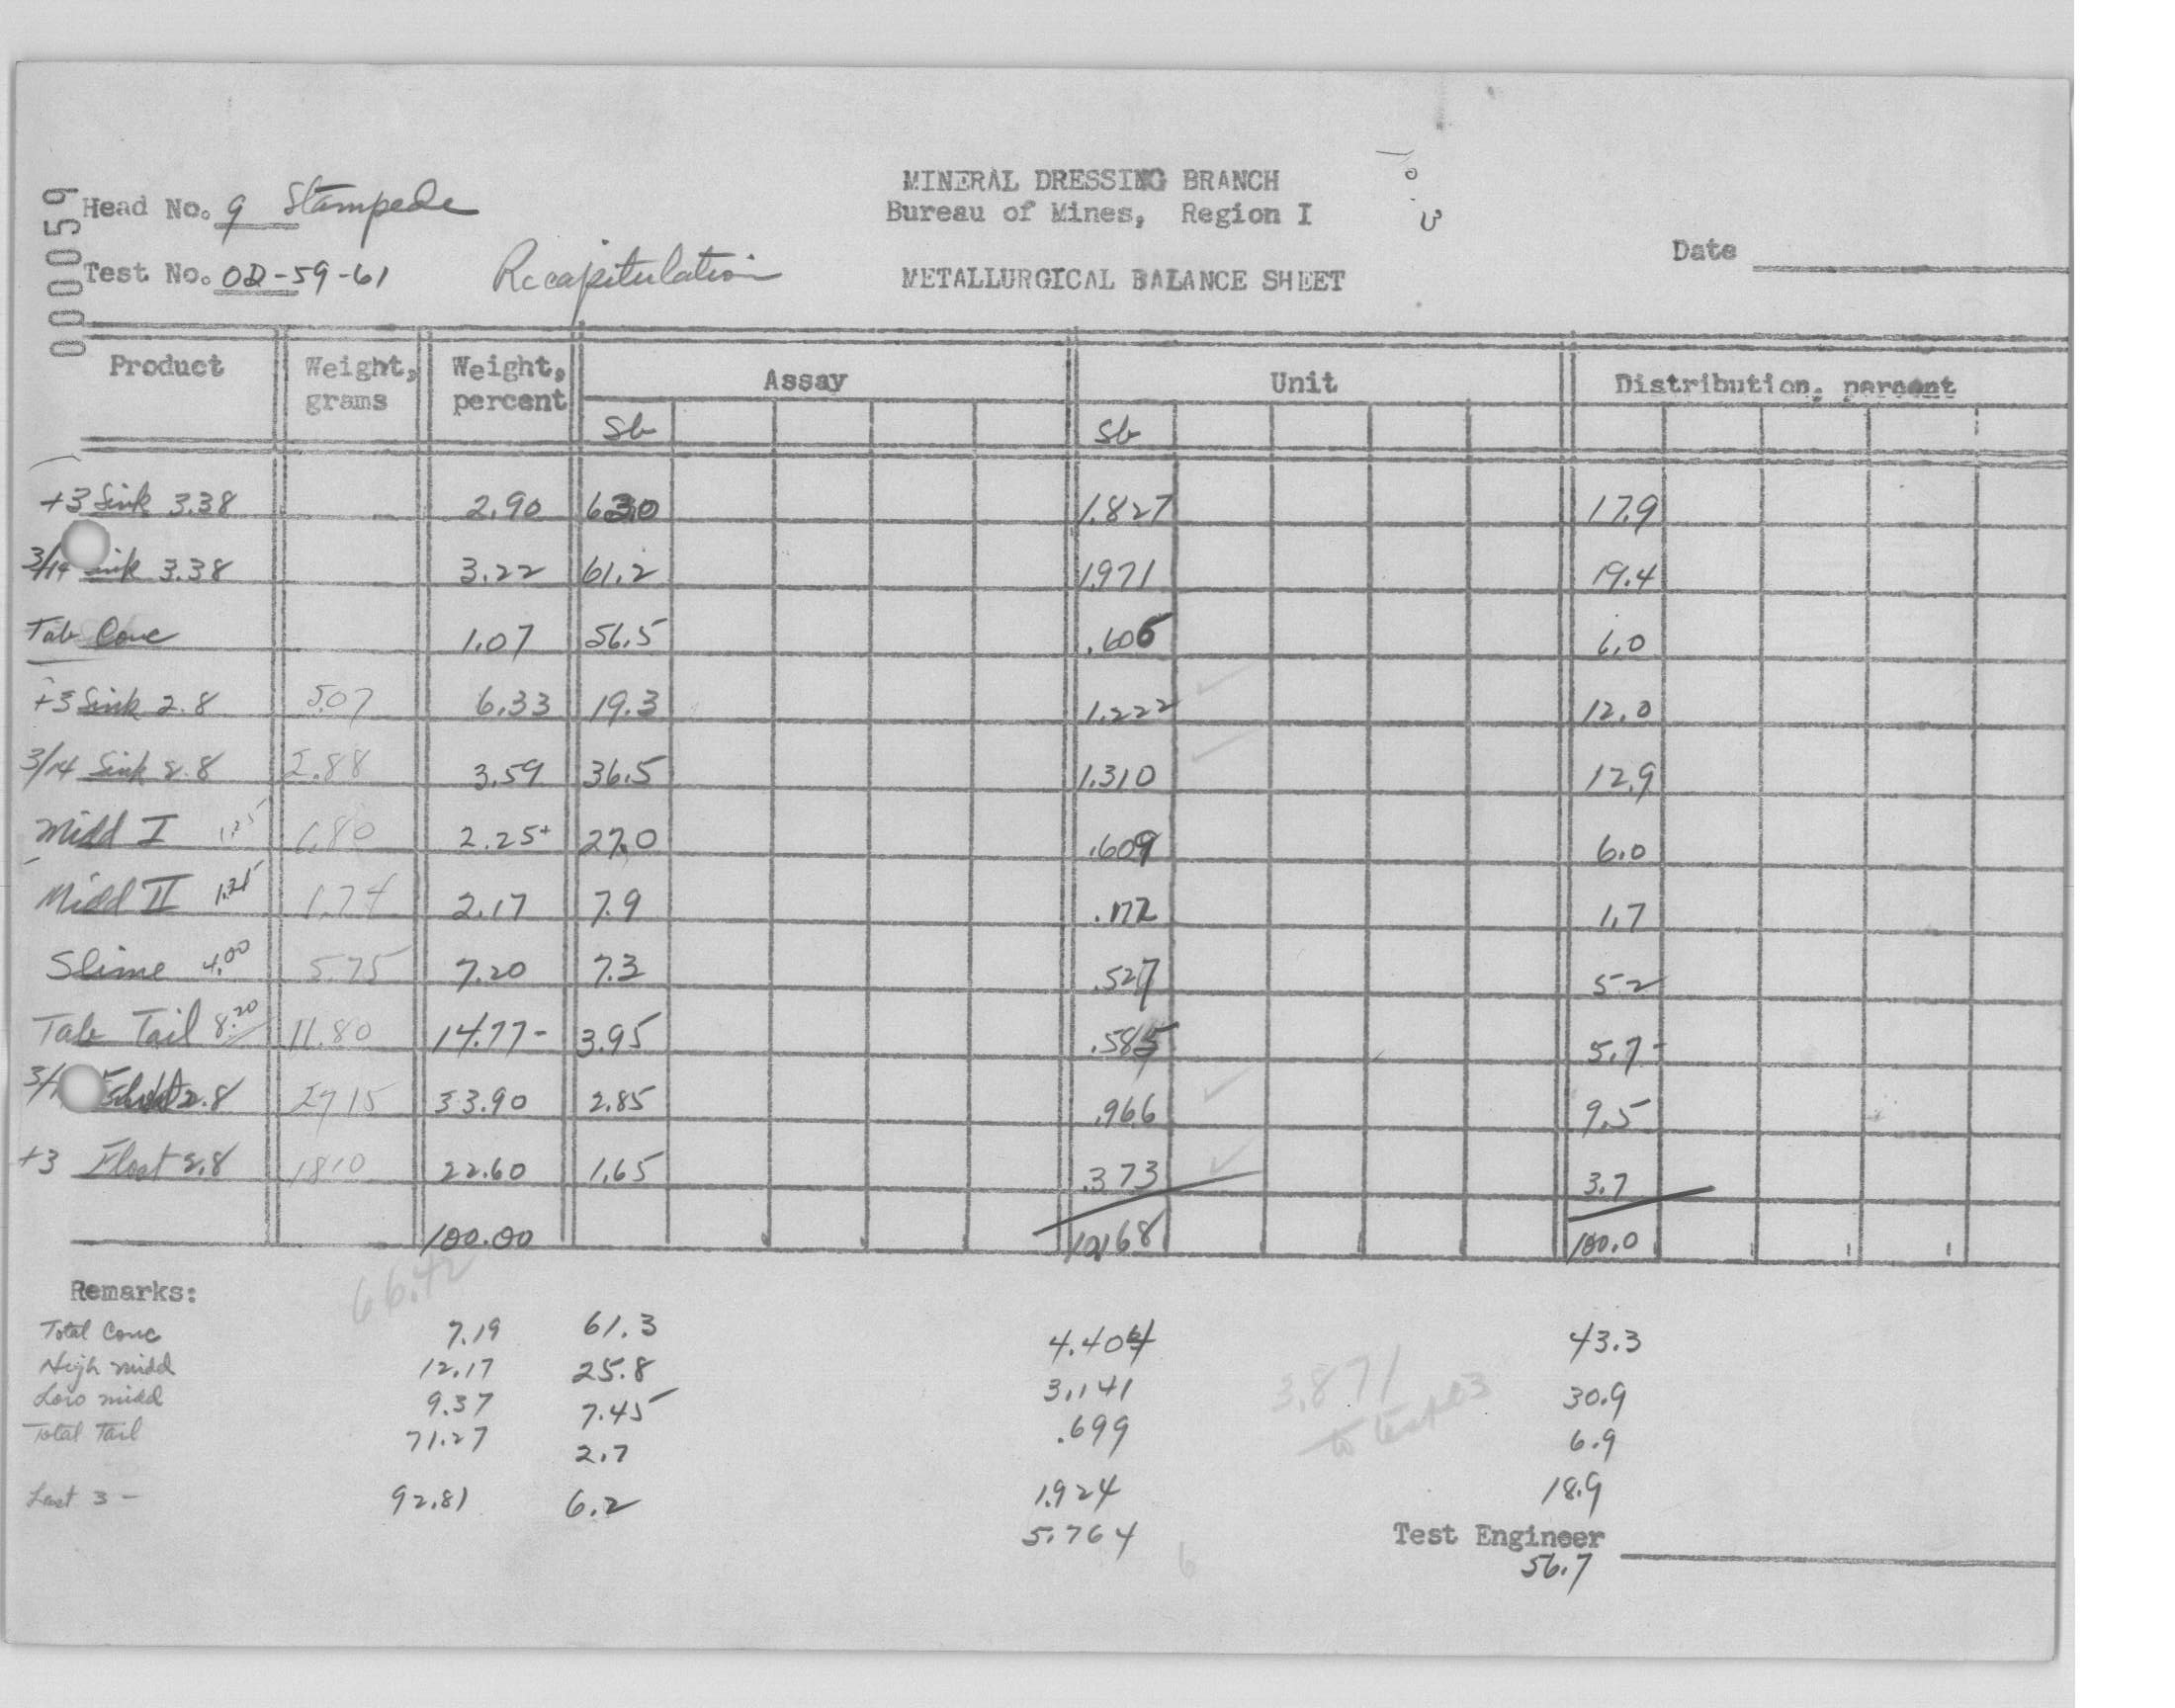 000059
MINERAL DRESSING BRANCH
Head No. 9 Stampede
Bureau of Mines, Region I
Date
Test No. OD-59-61 Recapitulation METALLURGICAL BALANCE SHEET
Product Weight, grams Weight, percent Assay Unit Distribution, percent
Sb Sb
+3 Sink 3.38 2.90 63.0 1.827 17.9
3/14 Sink 3.38 3.22 61.2 1.971 19.4
Tab Conc 1.07 56.5 .606 6.0
+3 Sink 2.8 5.07 6.33 19.3 1.222 12.0
3/14 Sink 2.8 2.88 3.59 36.5 1.310 12.9
Midd I 1.25 1.80 2.25+ 27.0 .609 6.0
Midd II 1.21 1.74 2.17 7.9 .172 1.7
Slime 4.00 5.75 7.20 7.3 .527 5.2
Tab Tail 8.20 11.80 14.77- 3.95 .585 5.7-
3/1 2.8 27 15 33.90 2.85 .966 9.5
+3 Float 2.8 1810 22.60 1.65 .373 3.7
100.00 10.168 100.0
66.42
Remarks:
Total Conc 7.19 61.3 4.404 43.3
High midd 12.17 25.8 3.141 30.9
3.871
to test 63
Low midd 9.37 7.45 .699 6.9
Total Tail 71.27 2.7 1.924 18.9
Last 3 - 92.81 6.2 5.764 56.7
6
Test Engineer